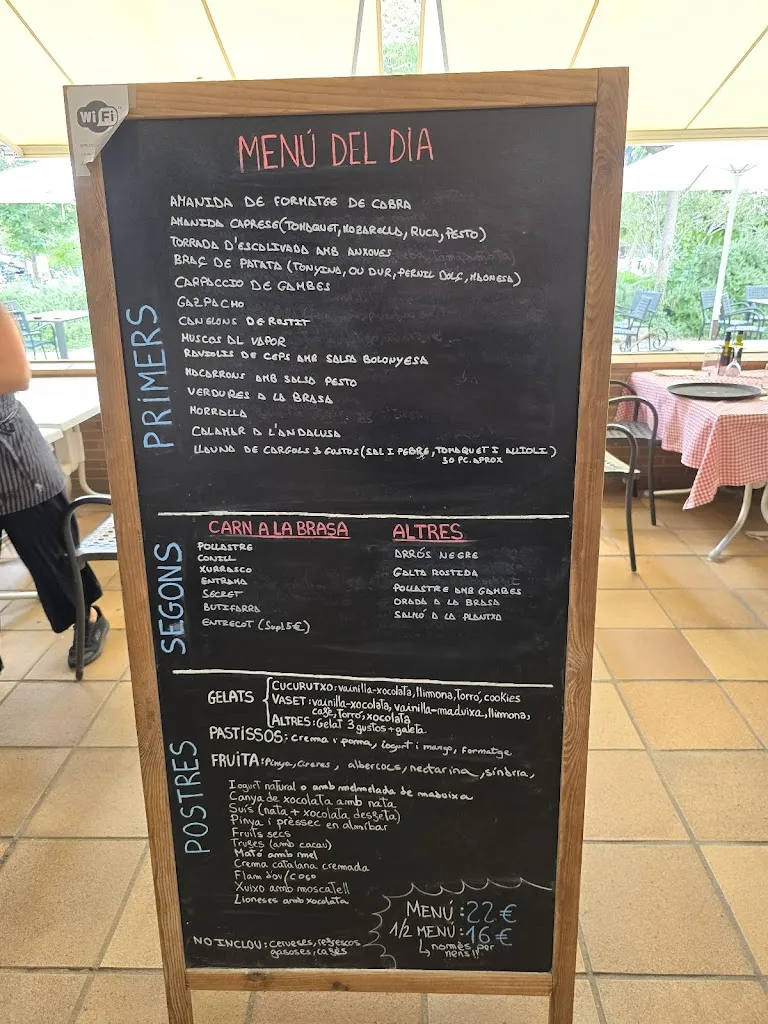 WiFi
MENÚ DEL DIA
PRIMERS
AMANIDA DE FORMATGE DE CABRA
AMANIDA CAPRESE (TOMAQUET, MOZARELLA, RUCA, PESTO)
TORRADA D'ESCALIVADA AMB ANXOVES
BRAÇ DE PATATA (TONYINA, OU DUR, PERNIL DOLÇ, MAONESA)
CARPACCIO DE GAMBES
GAZPACHO
CANELONS DE ROSTIT
MUSCOS AL VAPOR
RAVIOLIS DE CEPS AMB SALSA BOLONYESA
MACARRONS AMB SALSA PESTO
VERDURES A LA BRASA
MORRALLA
CALAMAR A L'ANDALUSA
LLAUNA DE CARGOLS 3 GUSTOS (SAL I PEBRE, TOMAQUET I ALLIOLI)
30 PC. APROX
SEGONS
CARN A LA BRASA
POLLASTRE
CONILL
XURRASCO
ENTRAMA
SECRET
BUTIFARRA
ENTRECOT (Supl 5€)
ALTRES
ARRÓS NEGRE
GALTA ROSTIDA
POLLASTRE AMB GAMBES
ORADA A LA BRASA
SALMÓ A LA PLANTXA
POSTRES
GELATS
CUCURUTXO: vainilla-xocolata, llimona, Torró, cookies
VASET: vainilla-xocolata, vainilla-maduixa, llimona,
café, Torró, xocolata
ALTRES: Gelat 3 gustos + galeta
PASTISSOS: crema i poma, iogurt i mango, formatge
FRUITA: Pinya, cireres, albercocs, nectarina, síndria,
Iogurt natural o amb melmelada de maduixa
Canya de xocolata amb nata
Suís (nata + xocolata desfeta)
Pinya i préssec en almíbar
Fruits secs
Trufes (amb cacau)
Mató amb mel
Crema catalana cremada
Flam d'ou/coco
Xuixo amb moscatell
Lioneses amb xocolata
NO INCLOU: cerveses, refrescos
gasoses, cafés
MENÚ: 22€
1/2 MENÚ: 16€
només per
nens!!